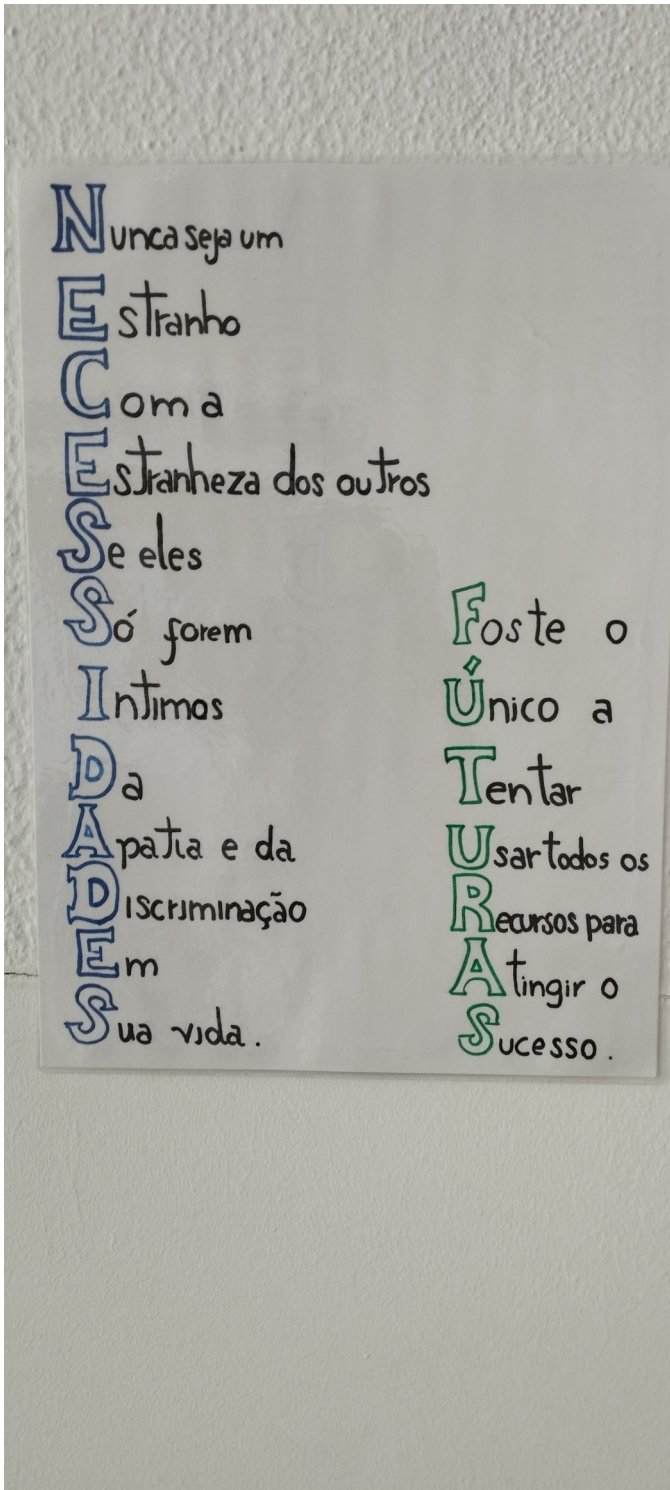 Nunca seja um
Estranho
Com a
Estranheza dos outros
Se eles
Só forem
Intimos
Da
Apatia e da
Discriminação
Em
Sua vida.
Foste o
Único a
Tentar
Usar todos os
Recursos para
Atingir o
Sucesso.